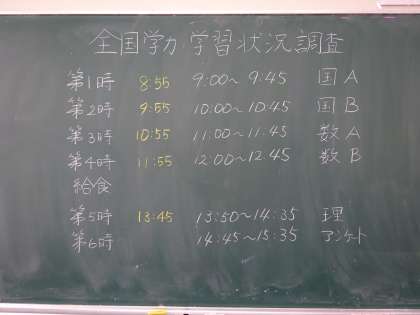 全国学力学習状況調査
第1時 8:55 9:00〜9:45 国A
第2時 9:55 10:00〜10:45 国B
第3時 10:55 11:00〜11:45 数A
第4時 11:55 12:00〜12:45 数B
給食
第5時 13:45 13:50〜14:35 理
第6時 14:45〜15:35 アンケート